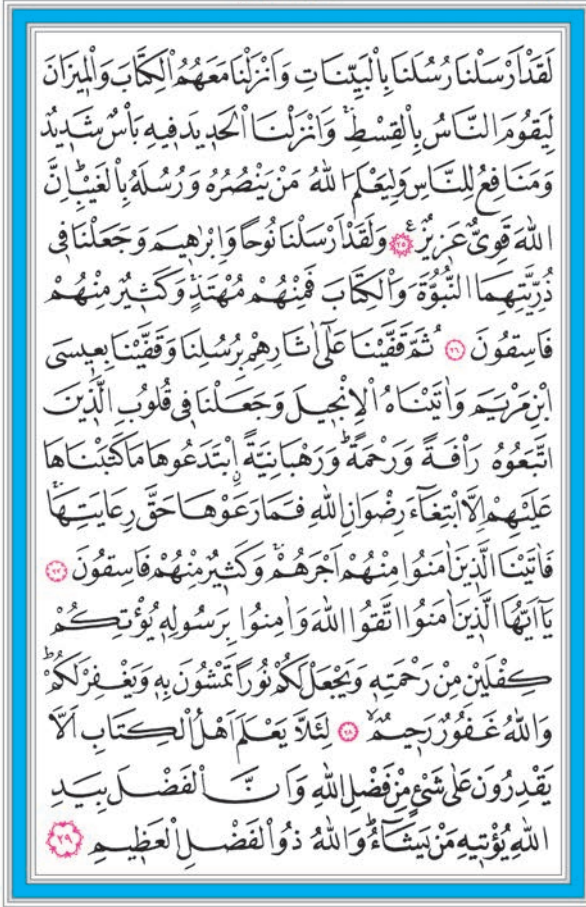 لَقَدْ اَرْسَلْنَا رُسُلَنَا بِالْبَيِّنَاتِ وَاَنْزَلْنَا مَعَهُمُ الْكِتَابَ وَالْمٖيزَانَ
لِيَقُومَ النَّاسُ بِالْقِسْطِۚ وَاَنْزَلْنَا الْحَدٖيدَ فٖيهِ بَأْسٌ شَدٖيدٌ
وَمَنَافِعُ لِلنَّاسِ وَلِيَعْلَمَ اللّٰهُ مَنْ يَنْصُرُهُ وَرُسُلَهُ بِالْغَيْبِؕ اِنَّ
اللّٰهَ قَوِىٌّ عَزٖيزٌࣖ ﴿٢٥﴾ وَلَقَدْ اَرْسَلْنَا نُوحاً وَاِبْرٰهٖيمَ وَجَعَلْنَا فٖى
ذُرِّيَّتِهِمَا النُّبُوَّةَ وَالْكِتَابَ فَمِنْهُمْ مُهْتَدٍۚ وَكَثٖيرٌ مِنْهُمْ
فَاسِقُونَ ﴿٢٦﴾ ثُمَّ قَفَّيْنَا عَلٰٓى اٰثَارِهِمْ بِرُسُلِنَا وَقَفَّيْنَا بِعٖيسَى
ابْنِ مَرْيَمَ وَاٰتَيْنَاهُ الْاِنْجٖيلَ وَجَعَلْنَا فٖى قُلُوبِ الَّذٖينَ
اتَّبَعُوهُ رَأْفَةً وَرَحْمَةًؕ وَرَهْبَانِيَّةًۨ ابْتَدَعُوهَا مَا كَتَبْنَاهَا
عَلَيْهِمْ اِلَّا ابْتِغَٓاءَ رِضْوَانِ اللّٰهِ فَمَا رَعَوْهَا حَقَّ رِعَايَتِهَاۚ
فَاٰتَيْنَا الَّذٖينَ اٰمَنُوا مِنْهُمْ اَجْرَهُمْۚ وَكَثٖيرٌ مِنْهُمْ فَاسِقُونَ ﴿٢٧﴾
يَٓا اَيُّهَا الَّذٖينَ اٰمَنُوا اتَّقُوا اللّٰهَ وَاٰمِنُوا بِرَسُولِهٖ يُؤْتِكُمْ
كِفْلَيْنِ مِنْ رَحْمَتِهٖ وَيَجْعَلْ لَكُمْ نُوراً تَمْشُونَ بِهٖ وَيَغْفِرْ لَكُمْؕ
وَاللّٰهُ غَفُورٌ رَحٖيمٌۙ ﴿٢٨﴾ لِئَلَّا يَعْلَمَ اَهْلُ الْكِتَابِ اَلَّا
يَقْدِرُونَ عَلٰى شَىْءٍ مِنْ فَضْلِ اللّٰهِ وَاَنَّ الْفَضْلَ بِيَدِ
اللّٰهِ يُؤْتٖيهِ مَنْ يَشَٓاءُؕ وَاللّٰهُ ذُو الْفَضْلِ الْعَظٖيمِ ﴿٢٩﴾